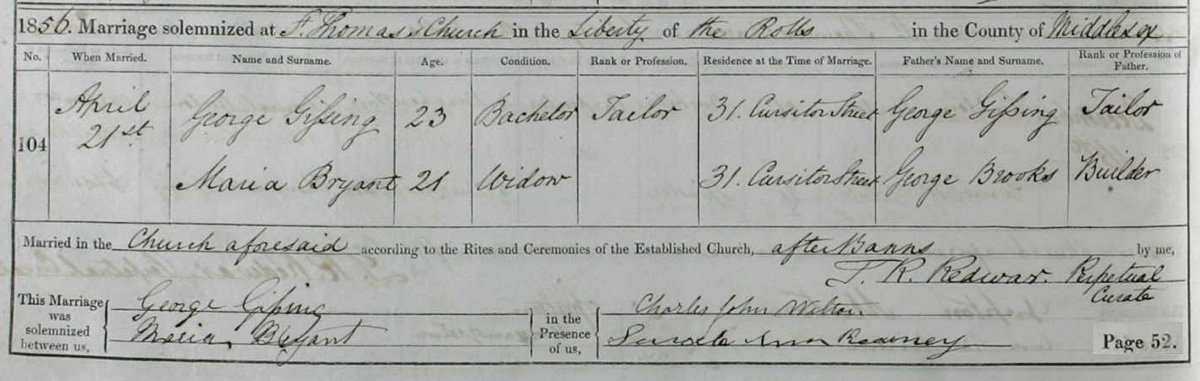 1856. Marriage solemnized at St. Thomas's Church in the Liberty of the Rolls in the County of Middlesex
No. When Married. Name and Surname. Age. Condition. Rank or Profession. Residence at the Time of Marriage. Father's Name and Surname. Rank or Profession of Father.
104 April 21st George Gissing 23 Bachelor Tailor 31. Cursitor Street George Gissing Tailor
Maria Bryant 21 Widow 31. Cursitor Street George Brooks Builder
Married in the Church aforesaid according to the Rites and Ceremonies of the Established Church, after Banns by me,
T. R. Redwar. Perpetual Curate
This Marriage was solemnized between us,
George Gissing
Maria Bryant
in the Presence of us,
Charles John Wilton.
Ann
Page 52.